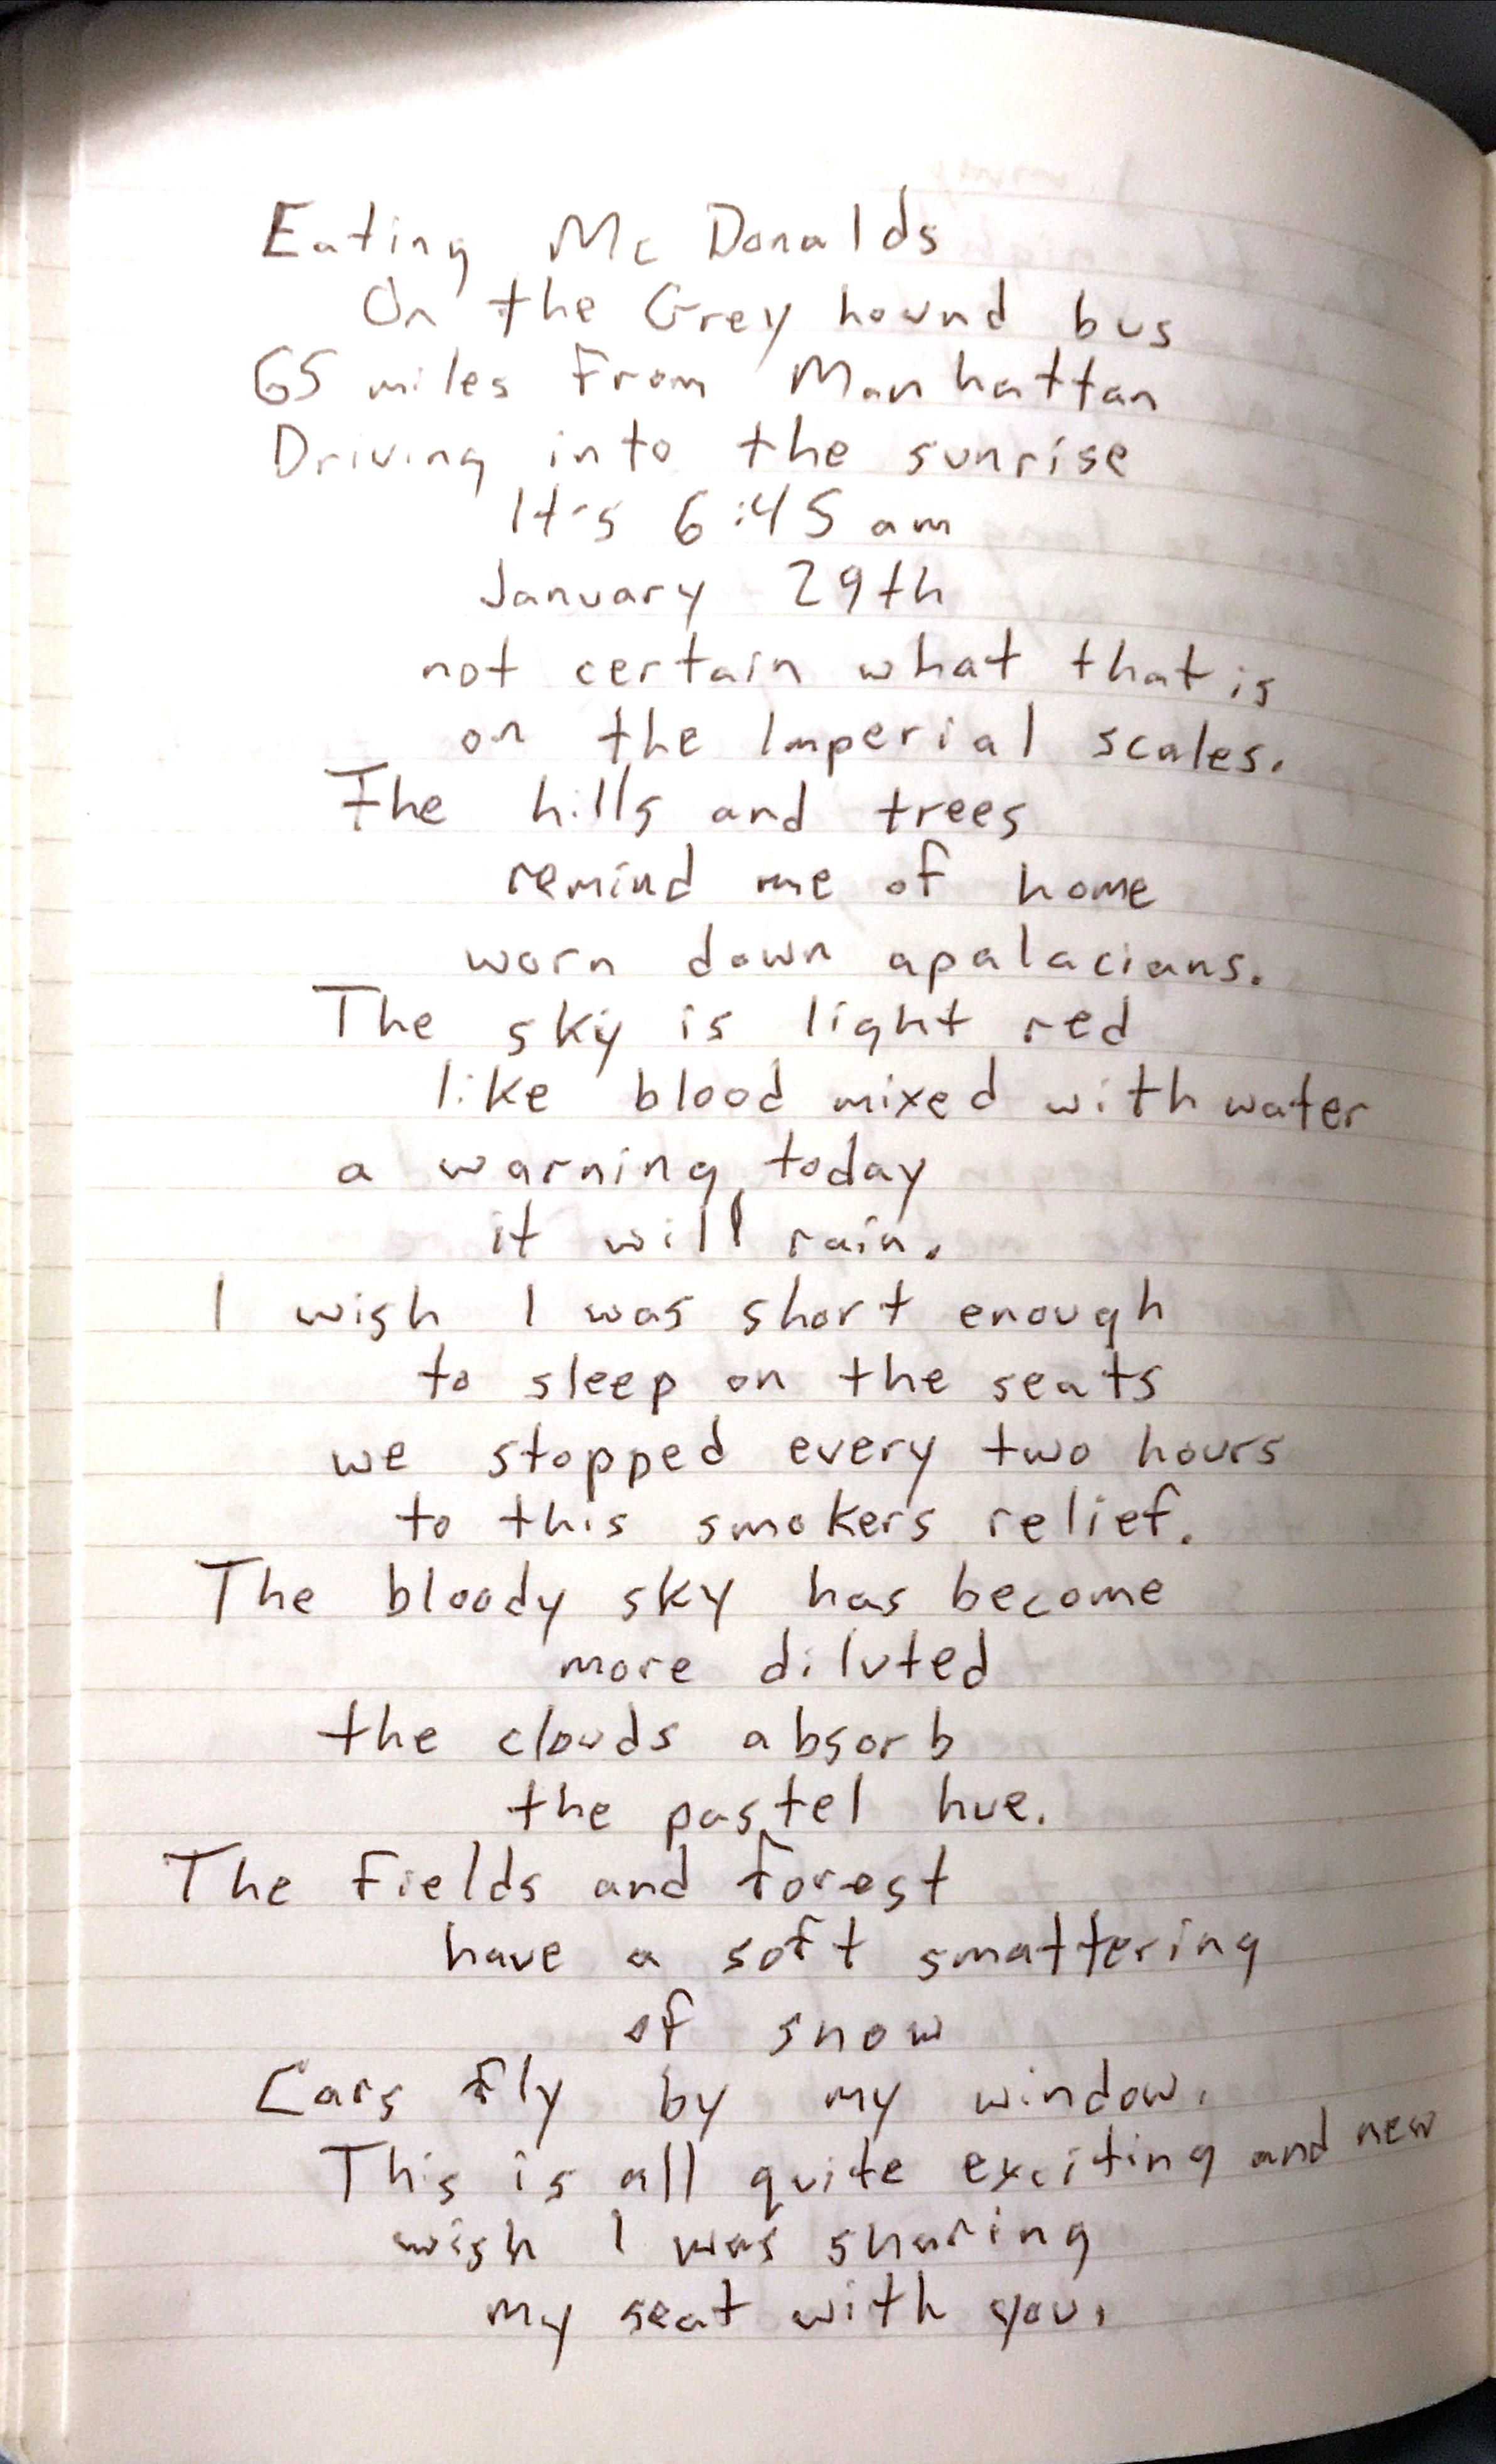 Eating McDonalds
On the Grey hound bus
65 miles from Manhattan
Driving into the sunrise
It's 6:45 am
January 29th
not certain what that is
on the Imperial scales.
The hills and trees
remind me of home
worn down apalacians.
The sky is light red
like blood mixed with water
a warning, today
it will rain.
I wish I was short enough
to sleep on the seats
we stopped every two hours
to this smokers relief.
The bloody sky has become
more diluted
the clouds absorb
the pastel hue.
The fields and forest
have a soft smattering
of snow
Cars fly by my window.
This is all quite exciting and new
wish I was sharing
my seat with you.